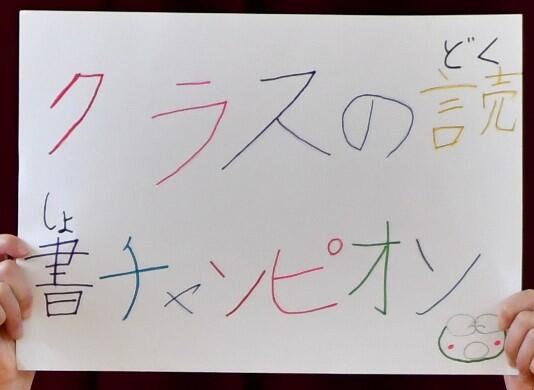 クラスの読
どく
書チャンピオン
しょ